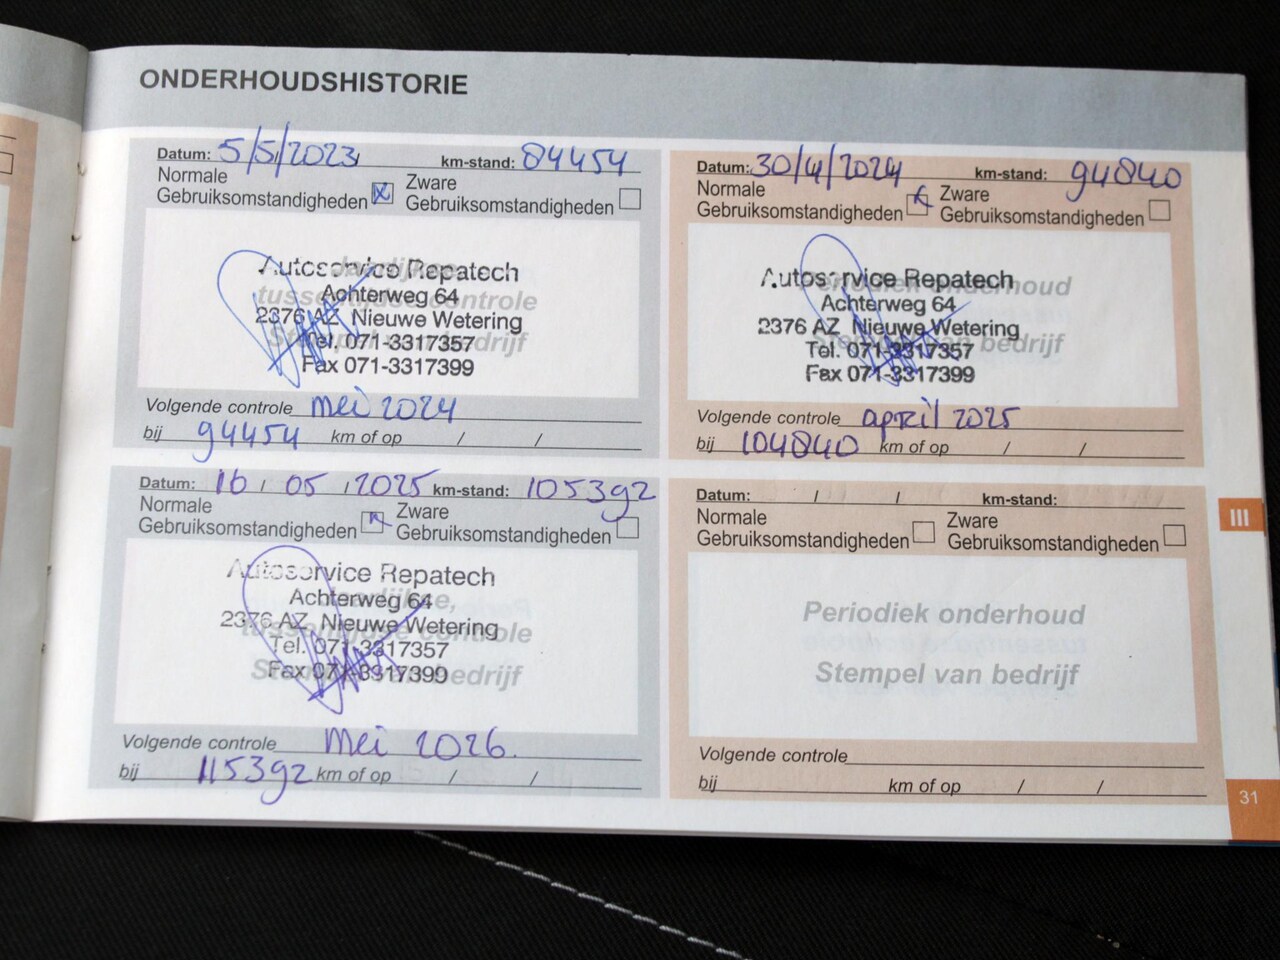 ONDERHOUDSHISTORIE
Datum: 5/5/2023 km-stand: 84454
Normale Gebruiksomstandigheden Zware Gebruiksomstandigheden
Autoservice Repatech
Achterweg 64
2376 AZ Nieuwe Wetering
Tel. 071-3317357
Fax 071-3317399
Jaarlijkse,
tussentijdse controle
Stempel van bedrijf
Volgende controle mei 2024
bij 94454 km of op / /
Datum: 30/4/2024 km-stand: 94840
Normale Gebruiksomstandigheden Zware Gebruiksomstandigheden
Autoservice Repatech
Achterweg 64
2376 AZ Nieuwe Wetering
Tel. 071-3317357
Fax 071-3317399
Periodiek onderhoud
Stempel van bedrijf
Volgende controle april 2025
bij 104840 km of op / /
Datum: 16 / 05 / 2025 km-stand: 105392
Normale Gebruiksomstandigheden Zware Gebruiksomstandigheden
Autoservice Repatech
Achterweg 64
2376 AZ Nieuwe Wetering
Tel. 071-3317357
Fax 071-3317399
Jaarlijkse,
tussentijdse controle
Stempel van bedrijf
Volgende controle mei 2026.
bij 115392 km of op / /
Datum: / / km-stand:
Normale Gebruiksomstandigheden Zware Gebruiksomstandigheden
Periodiek onderhoud
Stempel van bedrijf
Volgende controle
bij km of op / /
III
31